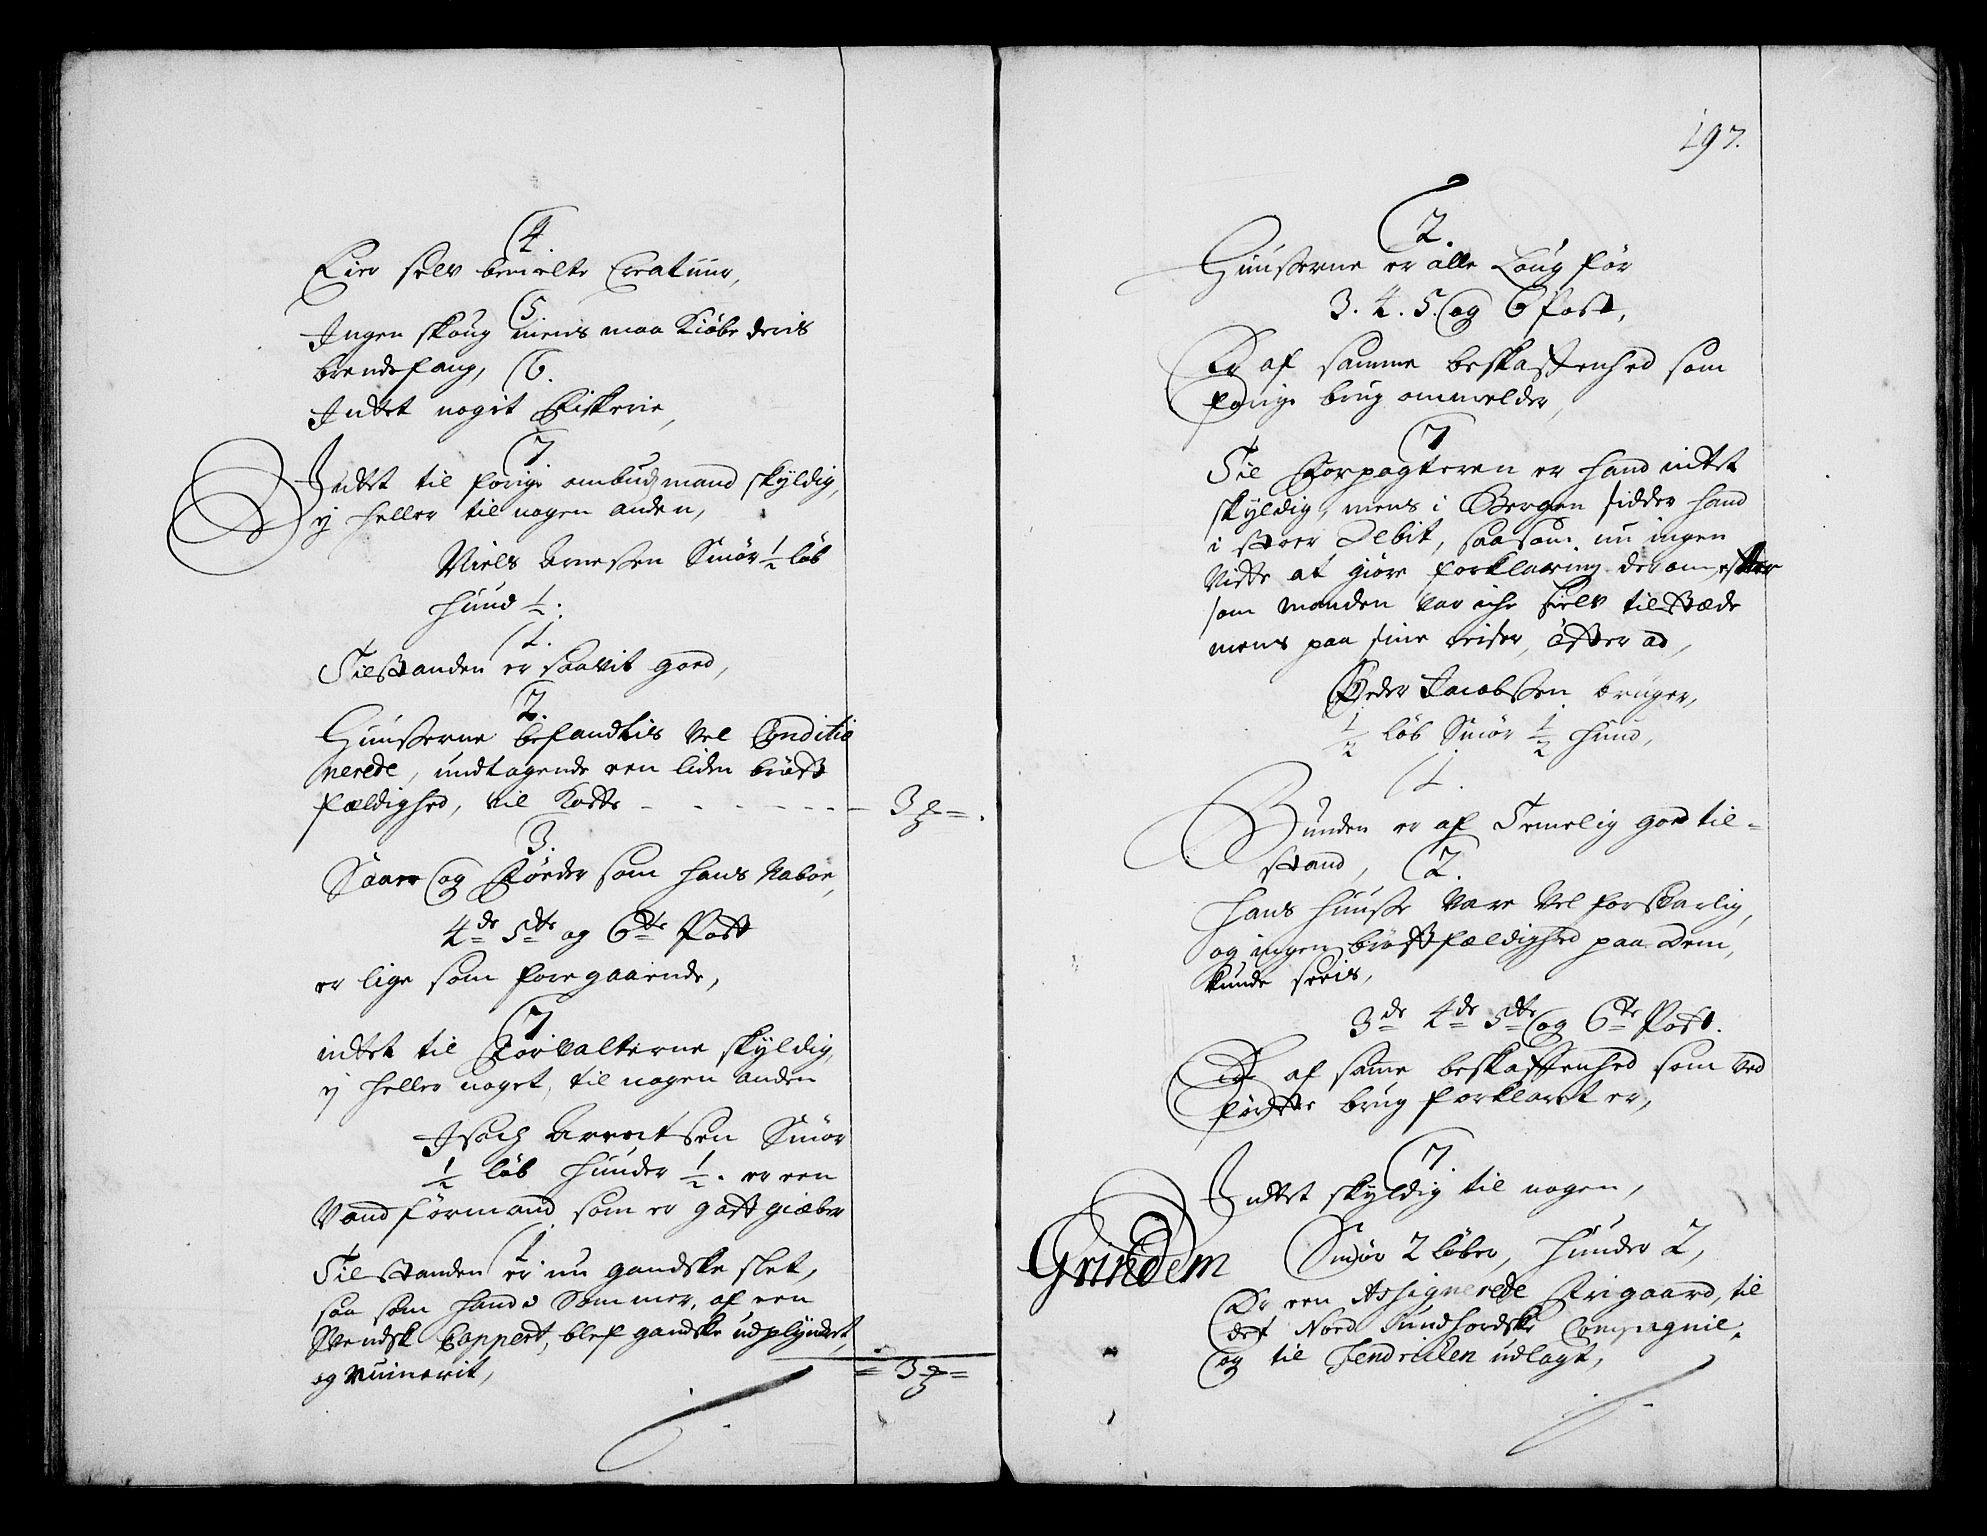 4.
Eier selv bemelte Creatuur,
5.
Ingen skoug mens maa Kiøbe deris
brendefang,
6.
Indtet noget Fiskerie,
7
Indtet til forige ombudzmand skyldig,
ej heller til nogen anden,
Niels Arnessen Smør 1/2 løb
hund 1/2.
1.
Tilstanden er saavit goed,
2.
Huusserne befandtis vel Conditio
nerede, undtagende een liden brøst
fældighed, vil Koste - - - - - - - 3
3.
Saaer og Føeder som hans Naboe,
4de 5te og 6te Post
er lige som foregaaende,
7
indtet til Forvalterne skyldig,
ej heller noget, til nogen anden
Isach Arentsen Smør
1/2 løb hunder 1/2. er een
Vandførmand som er gott giæber
1.
Tilstanden er nu gandske slet,
saa som hand Sommer, af een
Svendsk Cappert, blef gandske udplyndret,
og ruinerit,
= 3 =
197.
2.
Huusserne er alle Loug før
3. 4. 5. og 6 post,
Er af samme beskaffenhed som
forige brug ommelder,
7
Til Forpagteren er hand indtet
skyldig, mens i Bergen sidder hand
i stoer Debit, saasom nu ingen
Viste at giøre forklaring derom, efter
som Manden var iche sielv tilstæde
mens paa sine reiser, øster ad,
Peder Jacobssen bruger,
1/2 løb Smør 1/2 hund,
1.
Bunden er af Temelig goed til=
stand,
2.
hans huusse vare vel forsvarlig,
og ingen brøstfældighed paa dem,
kunde seeis,
3de 4de 5te og 6te Post.
Er af samme beskaffenhed som ved
første brug forklaret er,
7.
Indtet skyldig til nogen,
Grindem Smør 2 løber, hunder 2,
Er een Assignerede Frigaard, til
det Nord Sundhordske Compagnie,
og til Fendrichen udlagt,